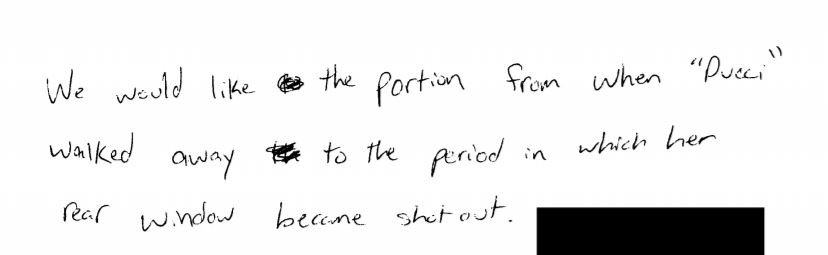 We would like the portion from when "Ducci"
walked away to the period in which her
rear window became shot out.